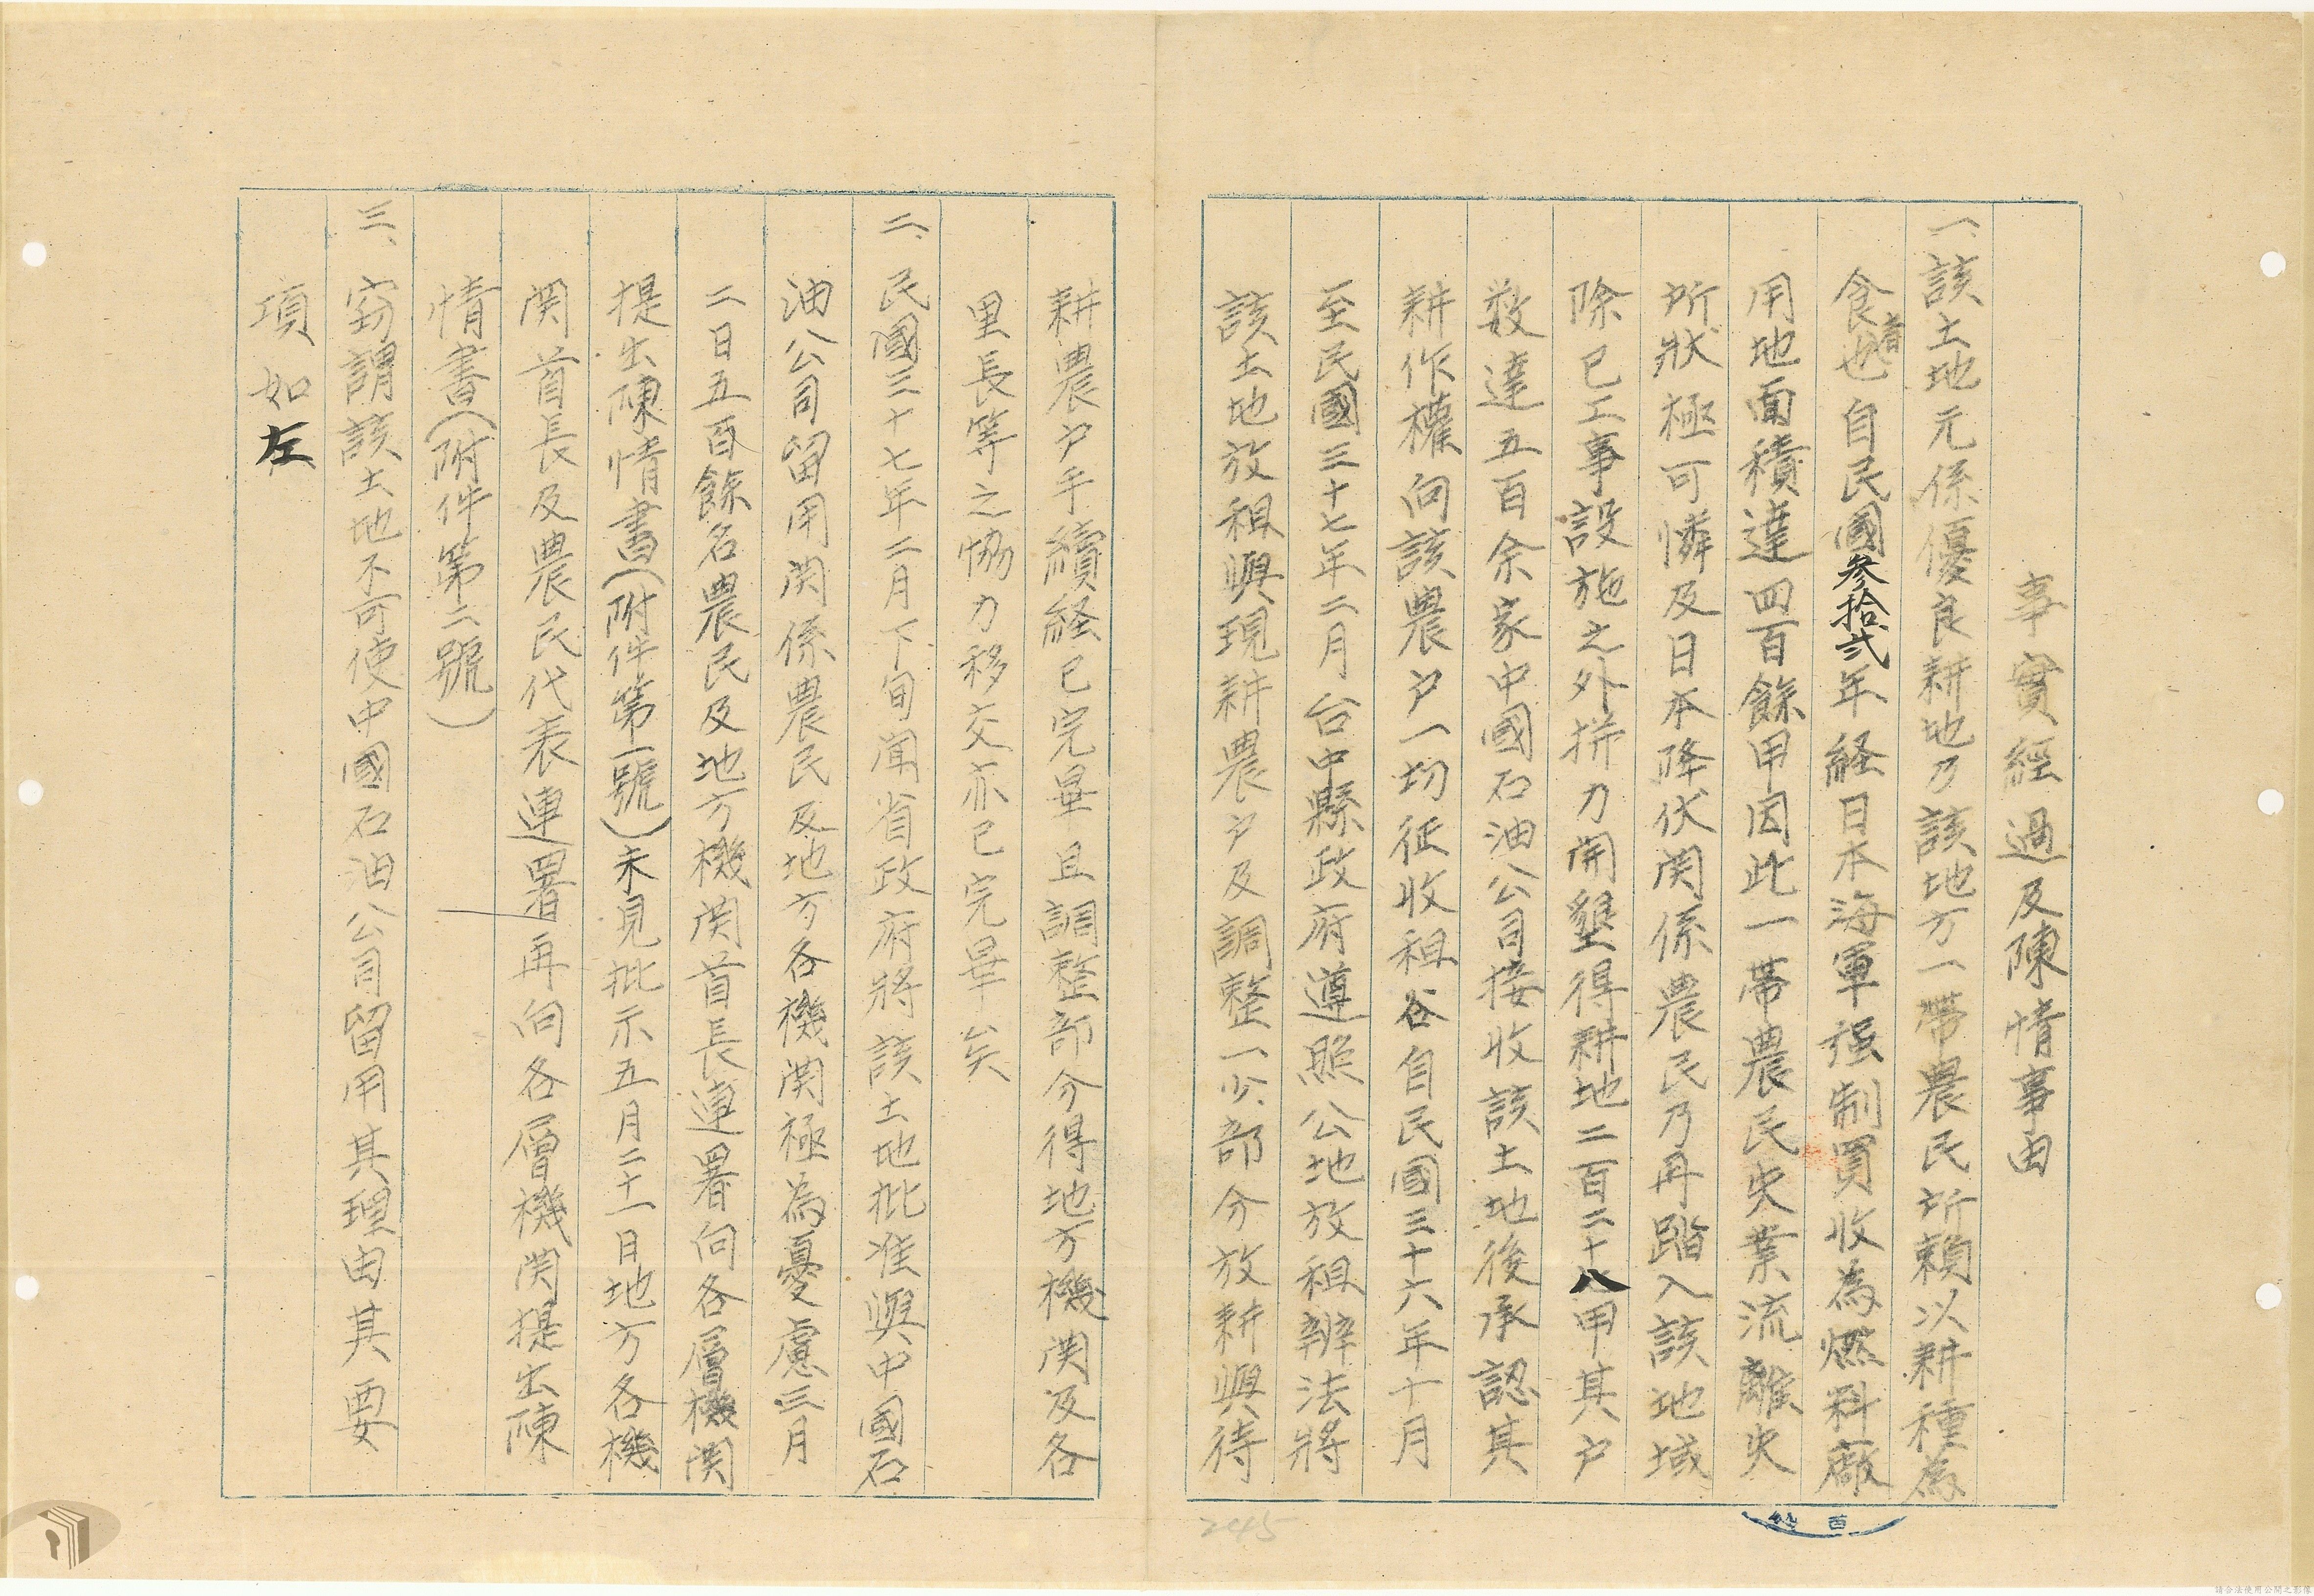 事實經過及陳情事由
一、該土地元係優良耕地乃該地方一帶農民所賴以耕種為
食者也自民國參拾弍年経日本海軍强制買收為燃料廠
用地面積達四百餘甲因此一帶農民失業流離失
所狀極可憐及日本降伏関係農民乃再踏入該地域
除已工事設施之外拼力開墾得耕地二百二十八甲其户
数達五百余家中國石油公司接收該土地後承認其
耕作權向該農户一切征收租谷自民國三十六年十月
至民國三十七年二月台中縣政府遵照公地放租辦法將
該土地放租與現耕農户及調整一少部分放耕與待
耕農户手續経已完畢且調整部分得地方機関及各
里長等之恊力移交亦已完畢矣
二、民國三十七年二月下旬闻省政府將該土地批准與中國石
油公司留用関係農民及地方各機関極為憂慮三月
二日五百餘名農民及地方機関首長連署向各層機関
提出陳情書(附件第一號)未見批示五月二十一日地方各機
関首長及農民代表連署再向各層機関提出陳
情書(附件第二號)
三、窃謂該土地不可使中國石油公司留用其理由其要
項如左
2445
請合法使用公開之影像